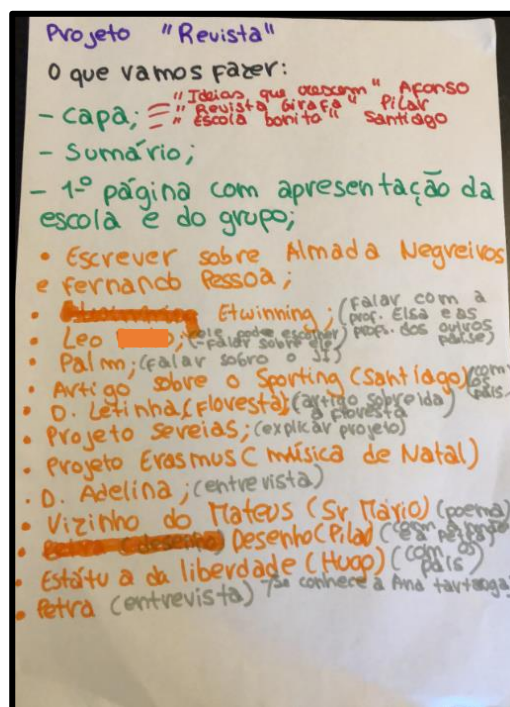 Projeto "Revista"
O que vamos fazer:
- Capa; "Ideias que crescem" Afonso
"Revista Girafa" Pilar
"Escola bonita" Santiago
- Sumário;
- 1º página com apresentação da
escola e do grupo;
• Escrever sobre Almada Negreiros
e Fernando Pessoa;
• Etwinning; (falar com a
prof. Elsa e as
profs. dos outros
• Leo ; (ele pode escolher
- falar sobre ele)
• Palmo; (falar sobro o JI)
• Artigo sobre o Sporting (Santiago) (com os
pais)
• D. Letinha (Floresta); (artigo sobre ida)
à floresta
• Projeto Sereias; (explicar projeto)
• Projeto Erasmus (música de Natal)
• D. Adelina; (entrevista)
• Vizinho do Mateus (Sr. Mário) (poema)
• Desenho (Pilar) (com a
• Estátua da liberdade (Hugo) (com os
pais)
• Petra (entrevista) conhece a Ana tartaruga)